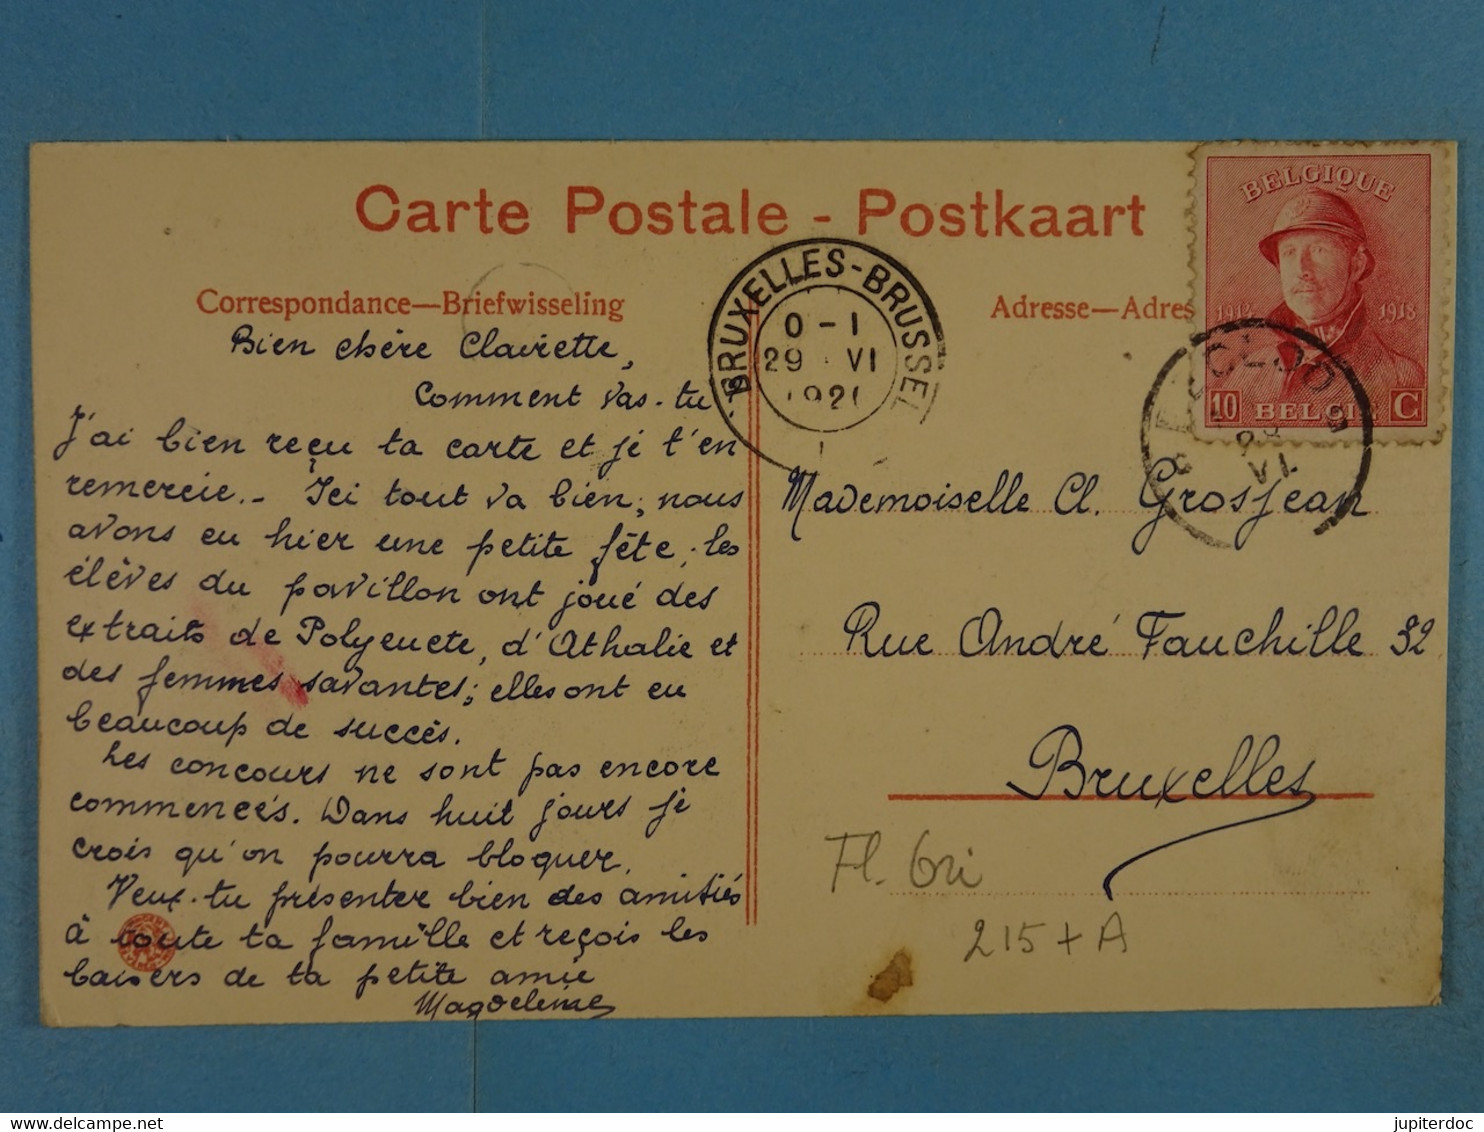 Carte Postale - Postkaart
Correspondance—Briefwisseling
Adresse—Adres
BELGIQUE
1914 1918
10 BELGIË C
BRUXELLES-BRUSSEL
0 - 1
29 VI
1921
VI
Bien chère Clairette,
Comment vas-tu
J'ai bien reçu ta carte et je t'en
remercie.- Ici tout va bien; nous
avons eu hier une petite fête; les
élèves du pavillon ont joué des
extraits de Polyeucte, d'Athalie et
des femmes savantes; elles ont eu
beaucoup de succès.
Les concours ne sont pas encore
commencés. Dans huit jours je
crois qu'on pourra bloquer.
Veux-tu présenter bien des amitiés
à toute ta famille et reçois les
baisers de ta petite amie
Magdeleine
Mademoiselle Cl. Grosjean
Rue André Fauchille 32
Bruxelles
215 + A
jupiterdoc